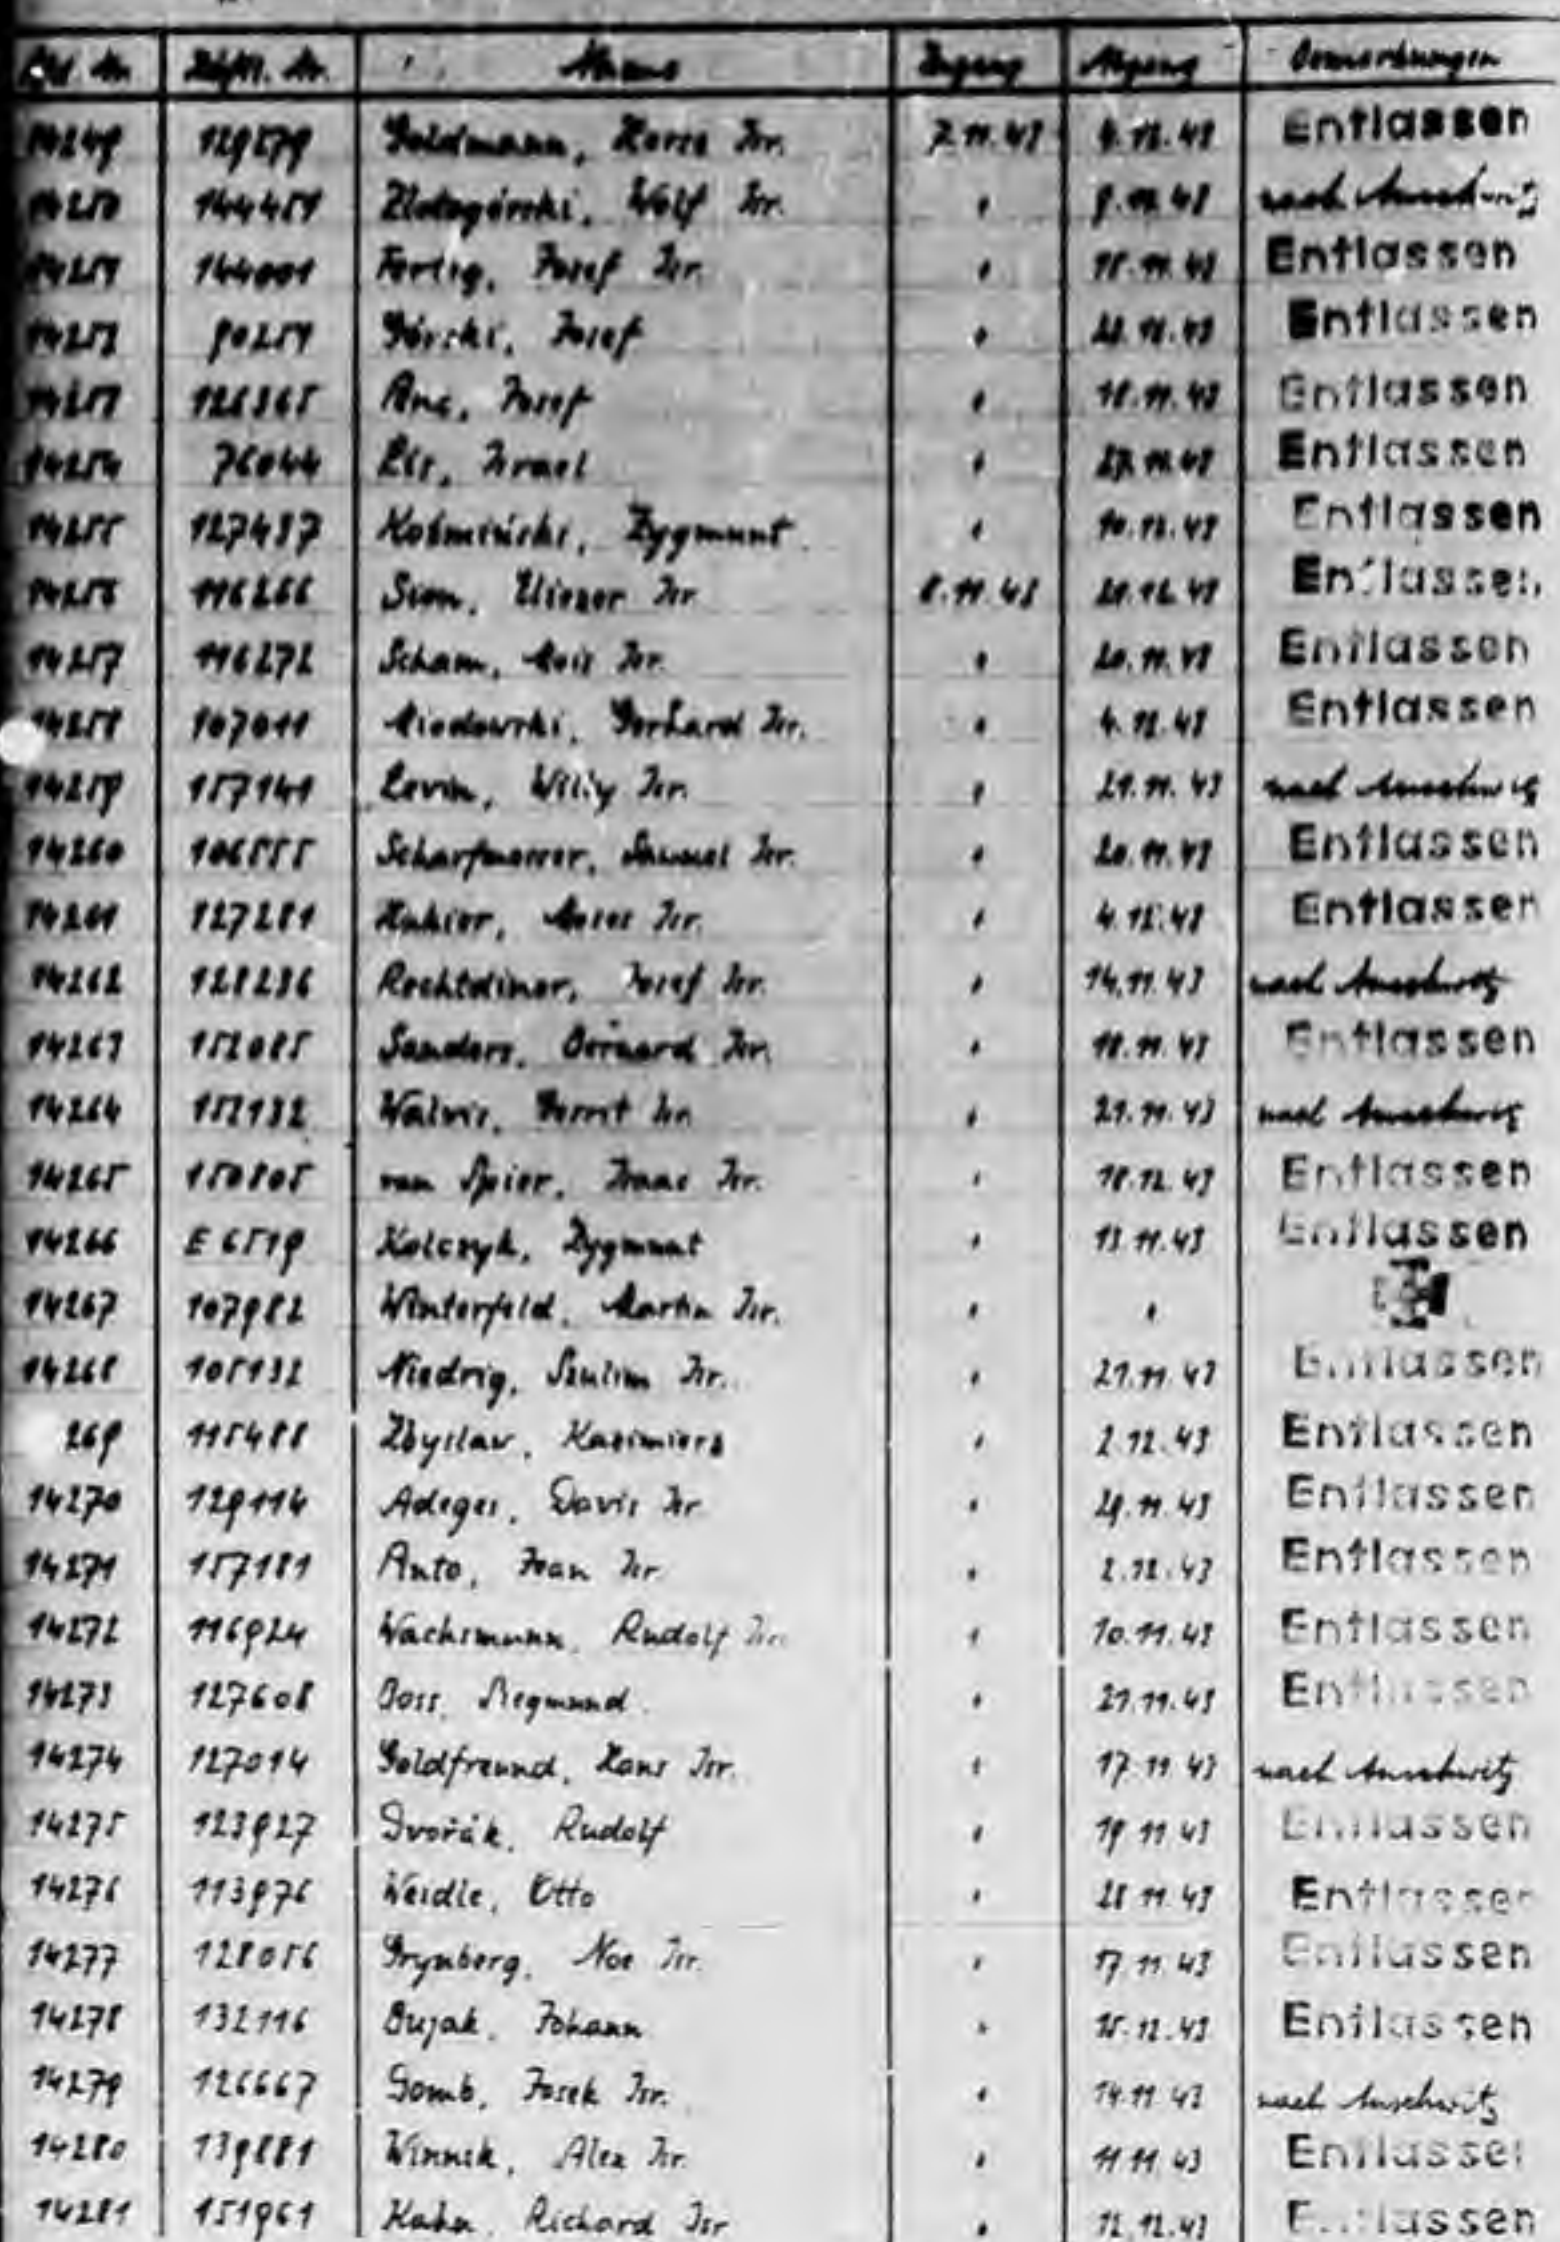 Lfd. Nr. Häftl. Nr. Name Zugang Abgang Bemerkungen
14249 129279 Goldmann, Isr. 7.11.43 4.12.43 Entlassen
14250 Wolf Isr. " nach Auschwitz
14251 144001 Fertig, Josef Isr. " Entlassen
14252 Górski, Josef " Entlassen
14253 126365 Josef " 18.11.43 Entlassen
14254 76044 Lis, Israel " 27.11.43 Entlassen
14255 127437 Kośmiński, Zygmunt " 10.12.43 Entlassen
14256 116266 Sion, Eliezer Isr. 8.11.43 20.12.43 Entlassen
14257 116272 Scham, Mois Isr. " 20.11.43 Entlassen
14258 107011 Miodowski, Gerhard Isr. " 4.12.43 Entlassen
14259 157141 Levin, Willy Isr. " 21.11.43 nach Auschwitz
14260 106555 Scharfmesser, Samuel Isr. " 20.11.43 Entlassen
14261 127281 Moses Isr. " 4.12.43 Entlassen
14262 128236 Rechtdiner, Josef Isr. " 14.11.43 nach Auschwitz
14263 152085 Sanders, Bernard Isr. " 18.11.43 Entlassen
14264 152132 Walvis, Gerrit Isr. " 21.11.43 nach Auschwitz
14265 150805 van Spier, Isaac Isr. " 18.12.43 Entlassen
14266 E 6519 Kolczyk, Zygmunt " 13.11.43 Entlassen
14267 107982 Winterfeld, Martin Isr. " "
14268 105132 Niedrig, Szulim Isr. " 21.11.43 Entlassen
269 115488 Zbyslaw, Kazimierz " 2.12.43 Entlassen
14270 129114 Adeges, Davis Isr. " 29.11.43 Entlassen
14271 157181 Anto, Jean Isr. " 2.12.43 Entlassen
14272 116924 Wachsmann, Rudolf Isr. " 10.11.43 Entlassen
14273 127608 Boss, Siegmund " 21.11.43 Entlassen
14274 127014 Goldfreund, Hans Isr. " 17.11.43 nach Auschwitz
14275 123927 Dvořák, Rudolf " 19.11.43 Entlassen
14276 113976 Weidle, Otto " 28.11.43 Entlassen
14277 128056 Grynberg, Noe Isr. " 17.11.43 Entlassen
14278 132116 Bujak, Johann " 15.12.43 Entlassen
14279 126667 Gomb, Josek Isr. " 14.11.43 nach Auschwitz
14280 139881 Winnik, Alex Isr. " 11.11.43 Entlassen
14281 151961 Kahn, Richard Isr. " 12.12.43 Entlassen